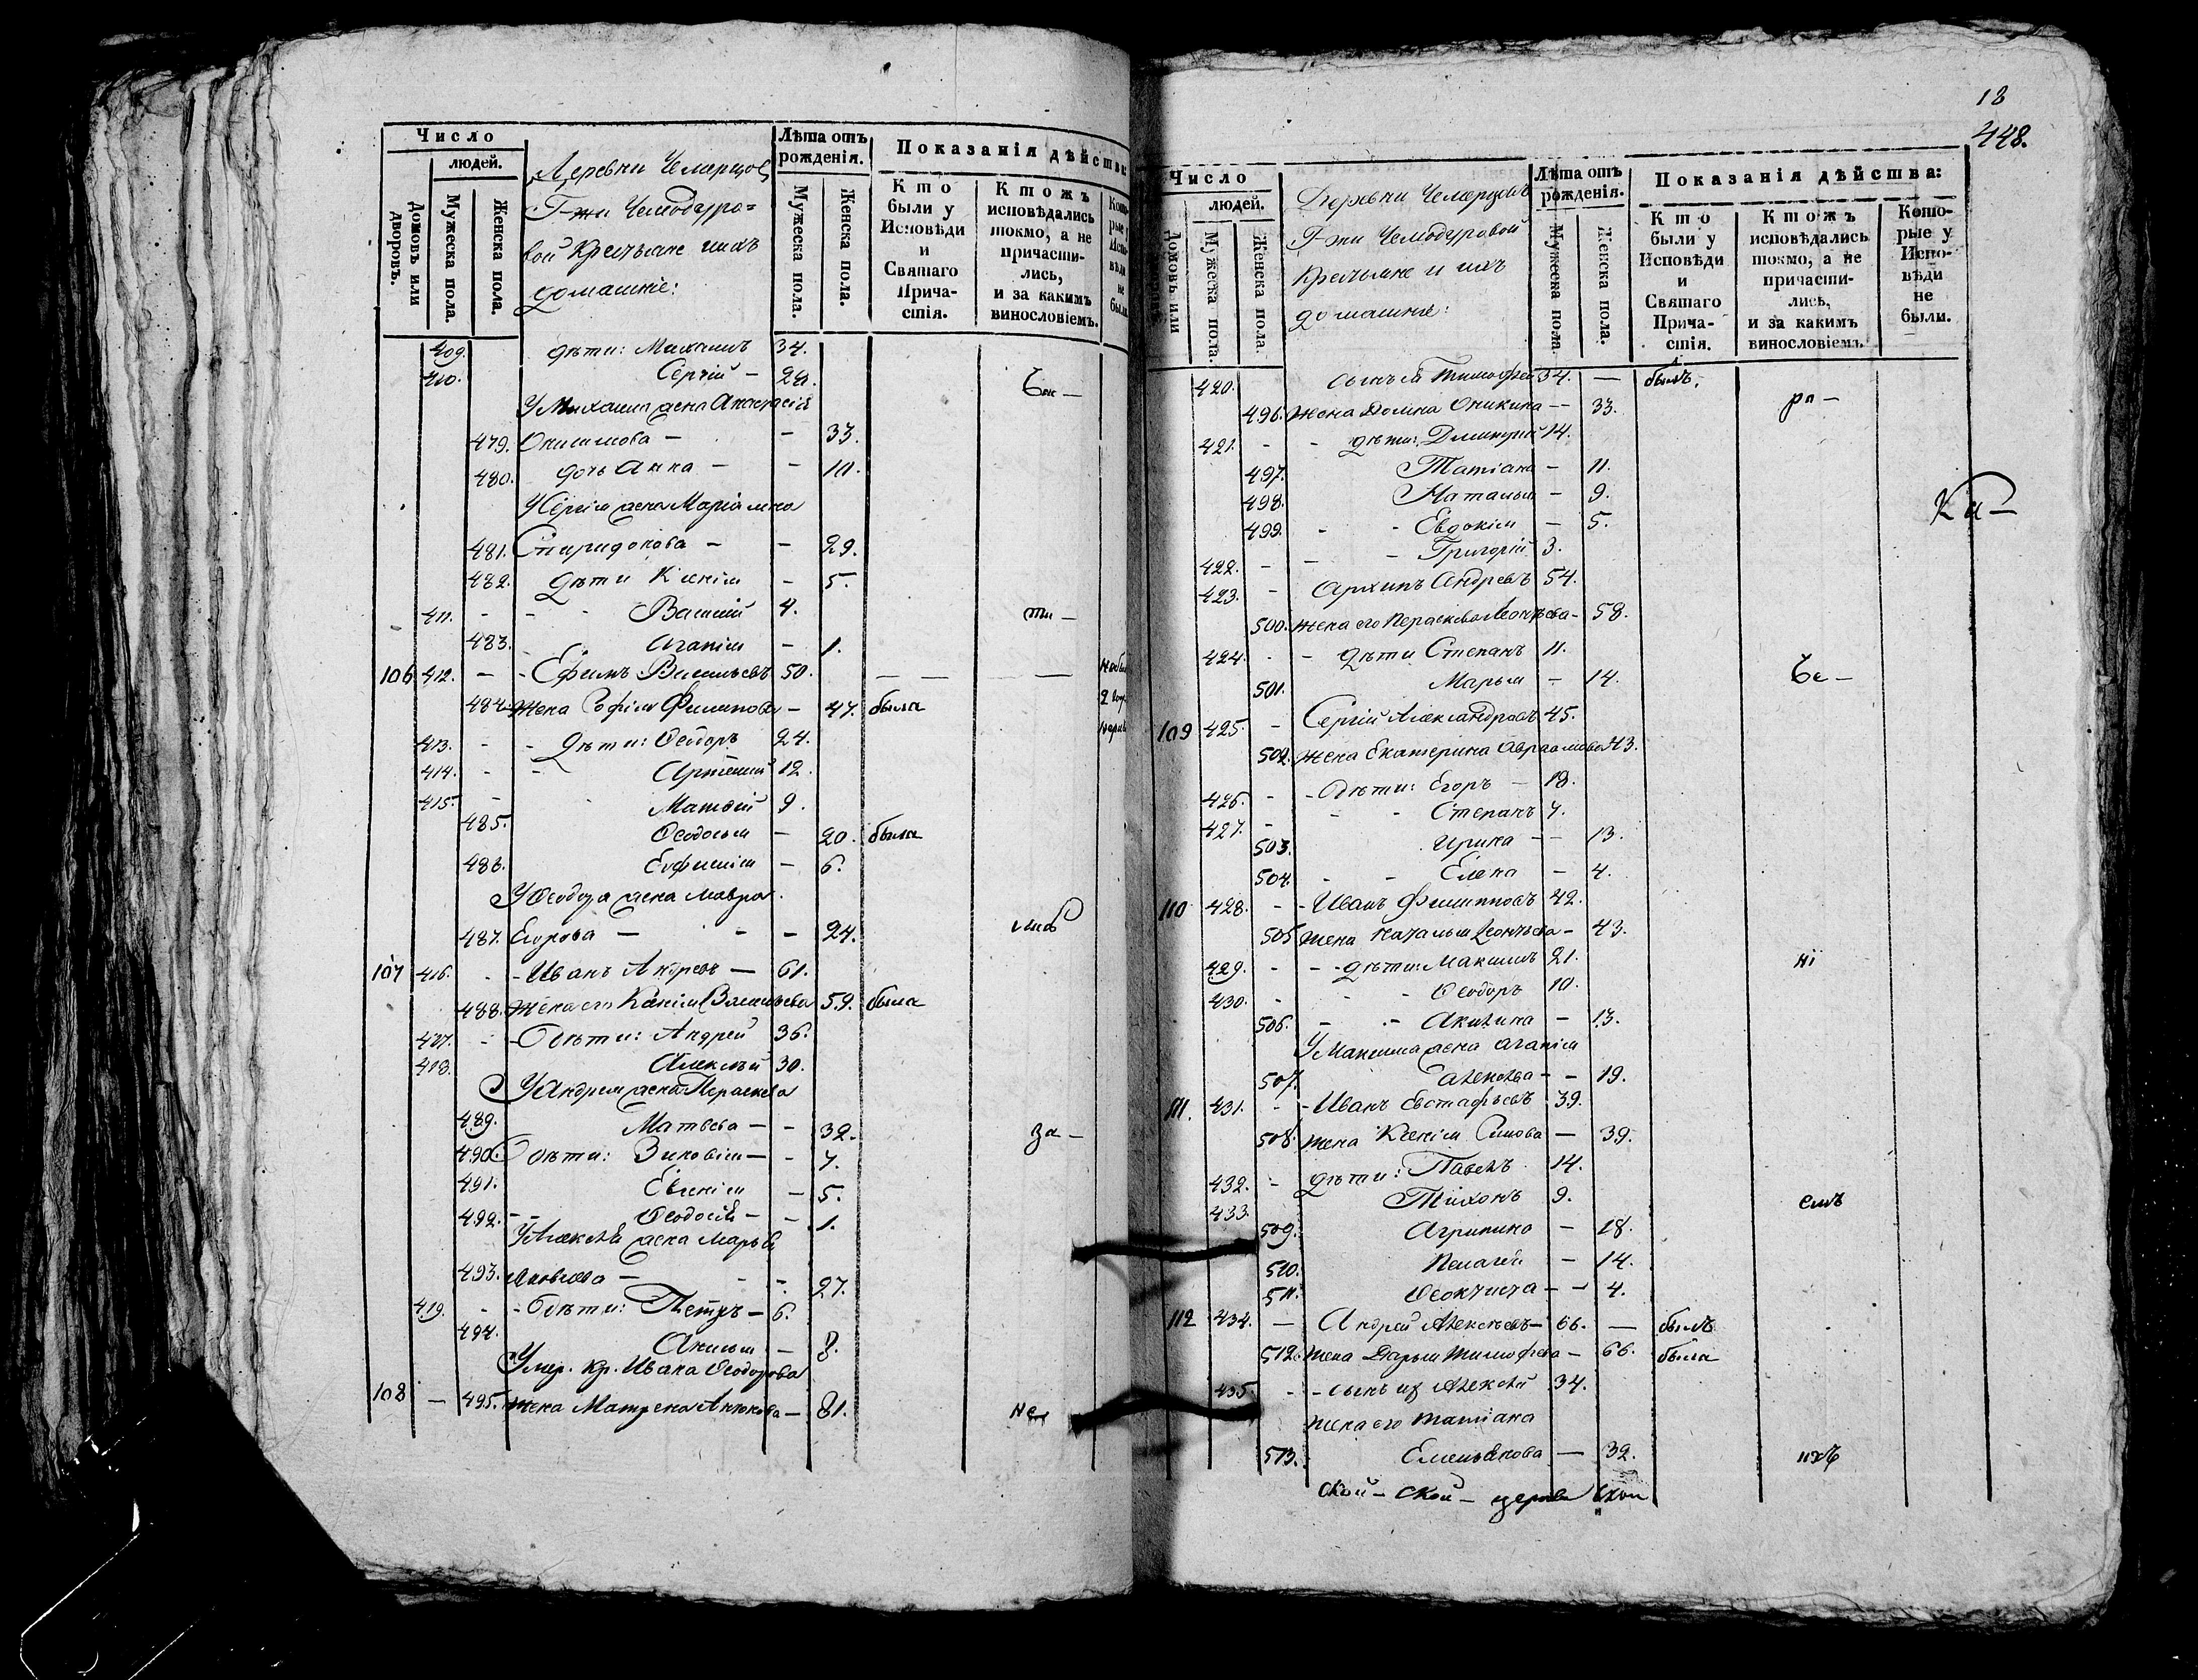 Число
людей.
Домовъ или дворовъ.
Мужеска пола.
Женска пола.
Деревни Чемерцовъ
Г-жи Чемодуро=
вой Крестьяне и ихъ
домашніе:
Лѣта отъ рожденія.
Мужеска пола.
Женска пола.
Показанія дѣйства:
Кто были у Исповѣди и Святаго Прича-стія.
Ктожъ исповѣдались токмо, а не причасти-лись, и за какимъ винословіемъ.
409. дѣти: Михаилъ 34.
410. Сергій — 24.
У Михаила жена Анастасія
479. Онисимова — — 33.
480. дочь Анна — — 10.
У Сергія жена Маріамна
481. Спиридонова — — 29.
482. дѣти Ксенія — 5.
411. - - - Василій 4.
483. Агапія — 1.
106. 412. — - Ефимъ Васильевъ 50. — — —
484. Жена Софія Филипова — 47. была
413. - - дѣти: Ѳеодоръ 24.
414. - - Артемій 12.
415. - Матвій 9.
485. Ѳеодосья — 20. была
486. Евфимія — 6.
У Ѳеодора жена Мавра
487. Егорова — - — 24.
107 416. - - Иванъ Андреевъ — 61.
488. Жена его Ксенія Васильева 59. была
417. - - Дѣти: Андрей 36.
418. Алексѣй 30.
У Андрея жена Параскева
489. Матвѣева — - 32.
490. Дѣти: Зиновія — - 7.
491. Евгенія — 5.
492. - - Ѳеодосія — - 1.
У Алексѣя жена Марья
493. Яковлева — - -. 27.
419. - - Дѣти: Петръ — 6.
494. Анисья — 8.
Умер. кр. Ивана Ѳеодорова
108 — 495. жена Матрена Антонова — 81.
18
448.
Число
людей.
Домовъ или
Мужеска пола.
Женска пола.
Деревни Чемерцовъ
Г-жи Чемодуровой
Крестьяне и ихъ
домашніе:
Лѣта отъ рожденія.
Мужеска пола.
Женска пола.
Показанія дѣйства:
Кто были у Исповѣди и Святаго Прича-стія.
Ктожъ исповѣдались токмо, а не причасти-лись, и за какимъ винословіемъ.
Кото-рые у Испо-вѣди не были.
420. сынъ ея Тимофей 34. — былъ.
496. Жена Домна Оникина — - 33. ра —
421. - - дѣти: Димитрій 14.
497. Татіана — 11.
498. Наталья — 9.
499. - - Евдокія — 5.
422. - - - Григорій 3.
423. - Архипъ Андреевъ 54.
500. жена его Параскева Леонтьева - 58.
424. - - дѣти Степанъ 11.
501. Марья — 14. Бо —
109 425. - Сергій Александровъ 45.
502. Жена Екатерина Авраамова 43.
426. - - Дѣти: Егоръ — 18.
427. - - - Степанъ 7.
503. Ирина — - 13.
504. - - Елена — 4.
110 428. - - Иванъ Филипповъ 42.
505 жена Наталья Леонтьева — 43.
429. - - - дѣти: Максимъ 21. ні
430. - - - Ѳеодоръ 10.
506. - - Акилина — 13.
У Максима жена Агапія
507. Алексѣева - - 19.
111. 431. - - Иванъ Евстафьевъ 39.
508. жена Ксенія Сикова — 39.
432. - дѣти: Павелъ 14.
433. Тихонъ 9. емъ
509. Агрипина — 18.
510. Пелагея — 14.
511. Ѳеоктиста — - 4.
112 434. — Андрей Алексѣевъ — 66. — былъ
512. жена Дарья Тимофѣева — 66. была
435. - - сынъ их Алексѣй 34.
жена его Татіана
513. Емельянова — 32. ихъ
ской — ской — церкви